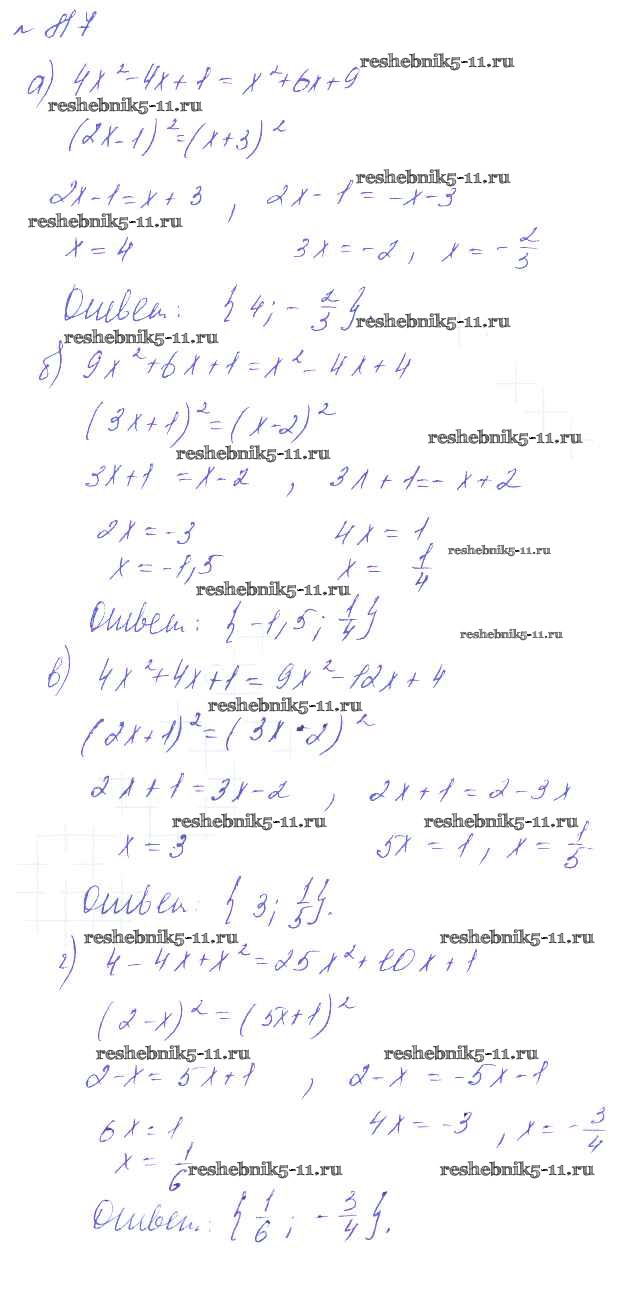 № 817
reshebnik5-11.ru
а) 4x² - 4x + 1 = x² + 6x + 9
reshebnik5-11.ru
(2x - 1)² = (x + 3)²
reshebnik5-11.ru
2x - 1 = x + 3 , 2x - 1 = -x - 3
reshebnik5-11.ru
x = 4 3x = -2 , x = -2/3
Ответ: {4; -2/3}.
reshebnik5-11.ru
reshebnik5-11.ru
б) 9x² + 6x + 1 = x² - 4x + 4
(3x + 1)² = (x - 2)²
reshebnik5-11.ru
reshebnik5-11.ru
3x + 1 = x - 2 , 3x + 1 = -x + 2
2x = -3 4x = 1
reshebnik5-11.ru
x = -1,5 x = 1/4
reshebnik5-11.ru
Ответ: {-1,5; 1/4}
reshebnik5-11.ru
в) 4x² + 4x + 1 = 9x² - 12x + 4
reshebnik5-11.ru
(2x + 1)² = (3x - 2)²
2x + 1 = 3x - 2 , 2x + 1 = 2 - 3x
reshebnik5-11.ru reshebnik5-11.ru
x = 3 5x = 1 , x = 1/5
Ответ: {3; 1/5}.
reshebnik5-11.ru reshebnik5-11.ru
г) 4 - 4x + x² = 25x² + 10x + 1
(2 - x)² = (5x + 1)²
reshebnik5-11.ru reshebnik5-11.ru
2 - x = 5x + 1 , 2 - x = -5x - 1
6x = 1 4x = -3 , x = -3/4
x = 1/6
reshebnik5-11.ru reshebnik5-11.ru
Ответ: {1/6; -3/4}.